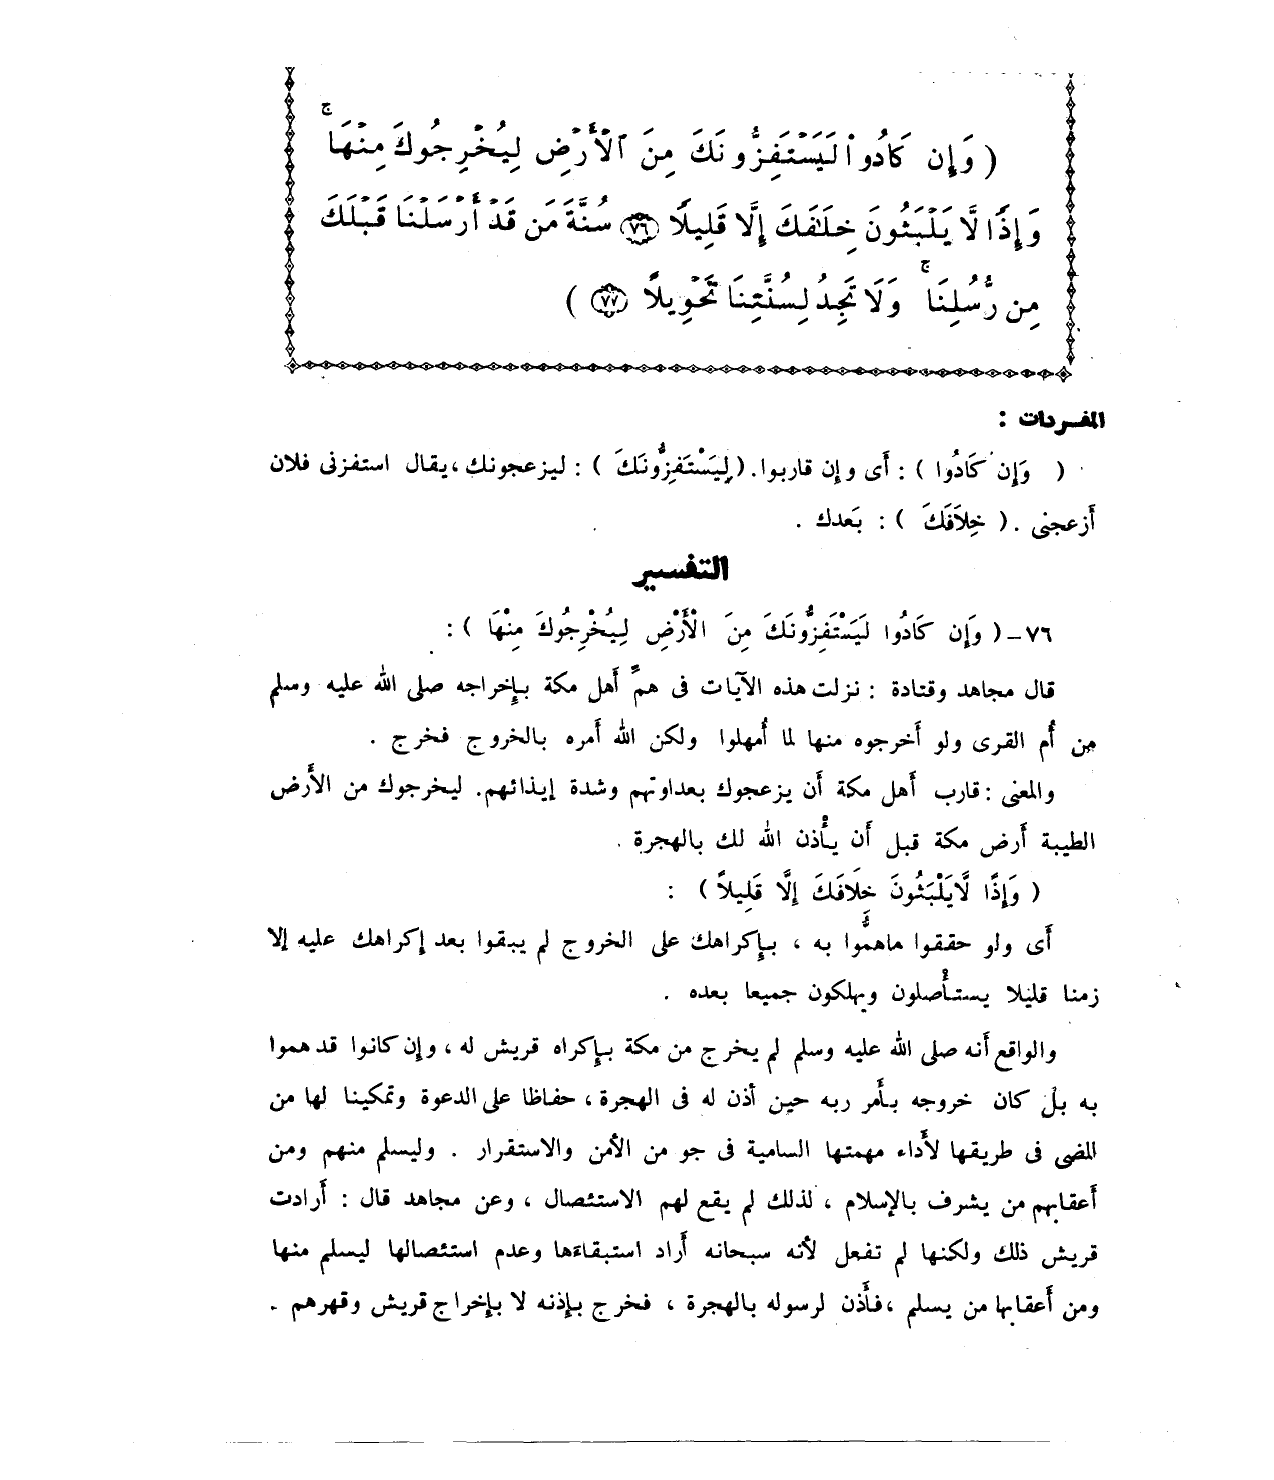 ( وَإِن كَادُوا۟ لَيَسْتَفِزُّونَكَ مِنَ ٱلْأَرْضِ لِيُخْرِجُوكَ مِنْهَا ۖ
وَإِذًا لَّا يَلْبَثُونَ خِلَٰفَكَ إِلَّا قَلِيلًا ٧٦ سُنَّةَ مَن قَدْ أَرْسَلْنَا قَبْلَكَ
مِن رُّسُلِنَا ۖ وَلَا تَجِدُ لِسُنَّتِنَا تَحْوِيلًا ٧٧ )
المفردات :
( وَإِن كَادُوا ) : أَى وإِن قاربوا. ( لِيَسْتَفِزُّونَكَ ) : ليزعجونك ، يقال استفزنى فلان
أَزعجنى . ( خِلاَفَكَ ) : بَعدك .
التفسير
٧٦ – ( وَإِن كَادُوا لَيَسْتَفِزُّونَكَ مِنَ الْأَرْضِ لِيُخْرِجُوكَ مِنْهَا ) :
قال مجاهد وقتادة : نزلت هذه الآيات فى همِّ أَهل مكة بإِخراجه صلى الله عليه وسلم
من أُم القرى ولو أَخرجوه منها لما أُمهلوا ولكن الله أَمره بالخروج فخرج .
والمعنى : قارب أَهل مكة أَن يزعجوك بعداوتهم وشدة إيذائهم. ليخرجوك من الأَرض
الطيبة أَرض مكة قبل أَن يأْذن الله لك بالهجرة .
( وَإِذًا لَّايَلْبَثُونَ خِلَافَكَ إِلَّا قَلِيلاً ) :
أَى ولو حققوا ماهمُّوا به ، بإِكراهك على الخروج لم يبقوا بعد إكراهك عليه إلا
زمنا قليلا يستأْصلون ويهلكون جميعا بعده .
والواقع أَنه صلى الله عليه وسلم لم يخرج من مكة بإِكراه قريش له ، وإن كانوا قد هموا
به بل كان خروجه بأَمر ربه حين أذن له فى الهجرة ، حفاظا على الدعوة وتمكينا لها من
المضى فى طريقها لأَداء مهمتها السامية فى جو من الأمن والاستقرار . وليسلم منهم ومن
أَعقابهم من يشرف بالإسلام ، لذلك لم يقع لهم الاستئصال ، وعن مجاهد قال : أَرادت
قريش ذلك ولكنها لم تفعل لأنه سبحانه أَراد استبقاءَها وعدم استئصالها ليسلم منها
ومن أَعقابها من يسلم ، فأَذن لرسوله بالهجرة ، فخرج بإذنه لا بإخراج قريش وقهرهم .